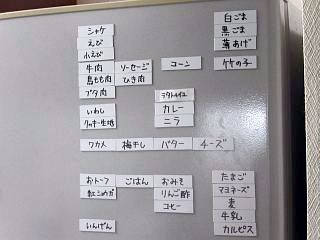 シャケ 白ごま
えび 黒ごま
小えび 薄あげ
牛肉 ソーセージ コーン 竹の子
鳥もも肉 ひき肉
ブタ肉
いわし カレー
クッキー生地 ニラ
ワカメ 梅干し バター チーズ
おトーフ ごはん おみそ たまご
紅ショウガ りんご酢 マヨネーズ
コーヒー 麦
いんげん 牛乳
カルピス